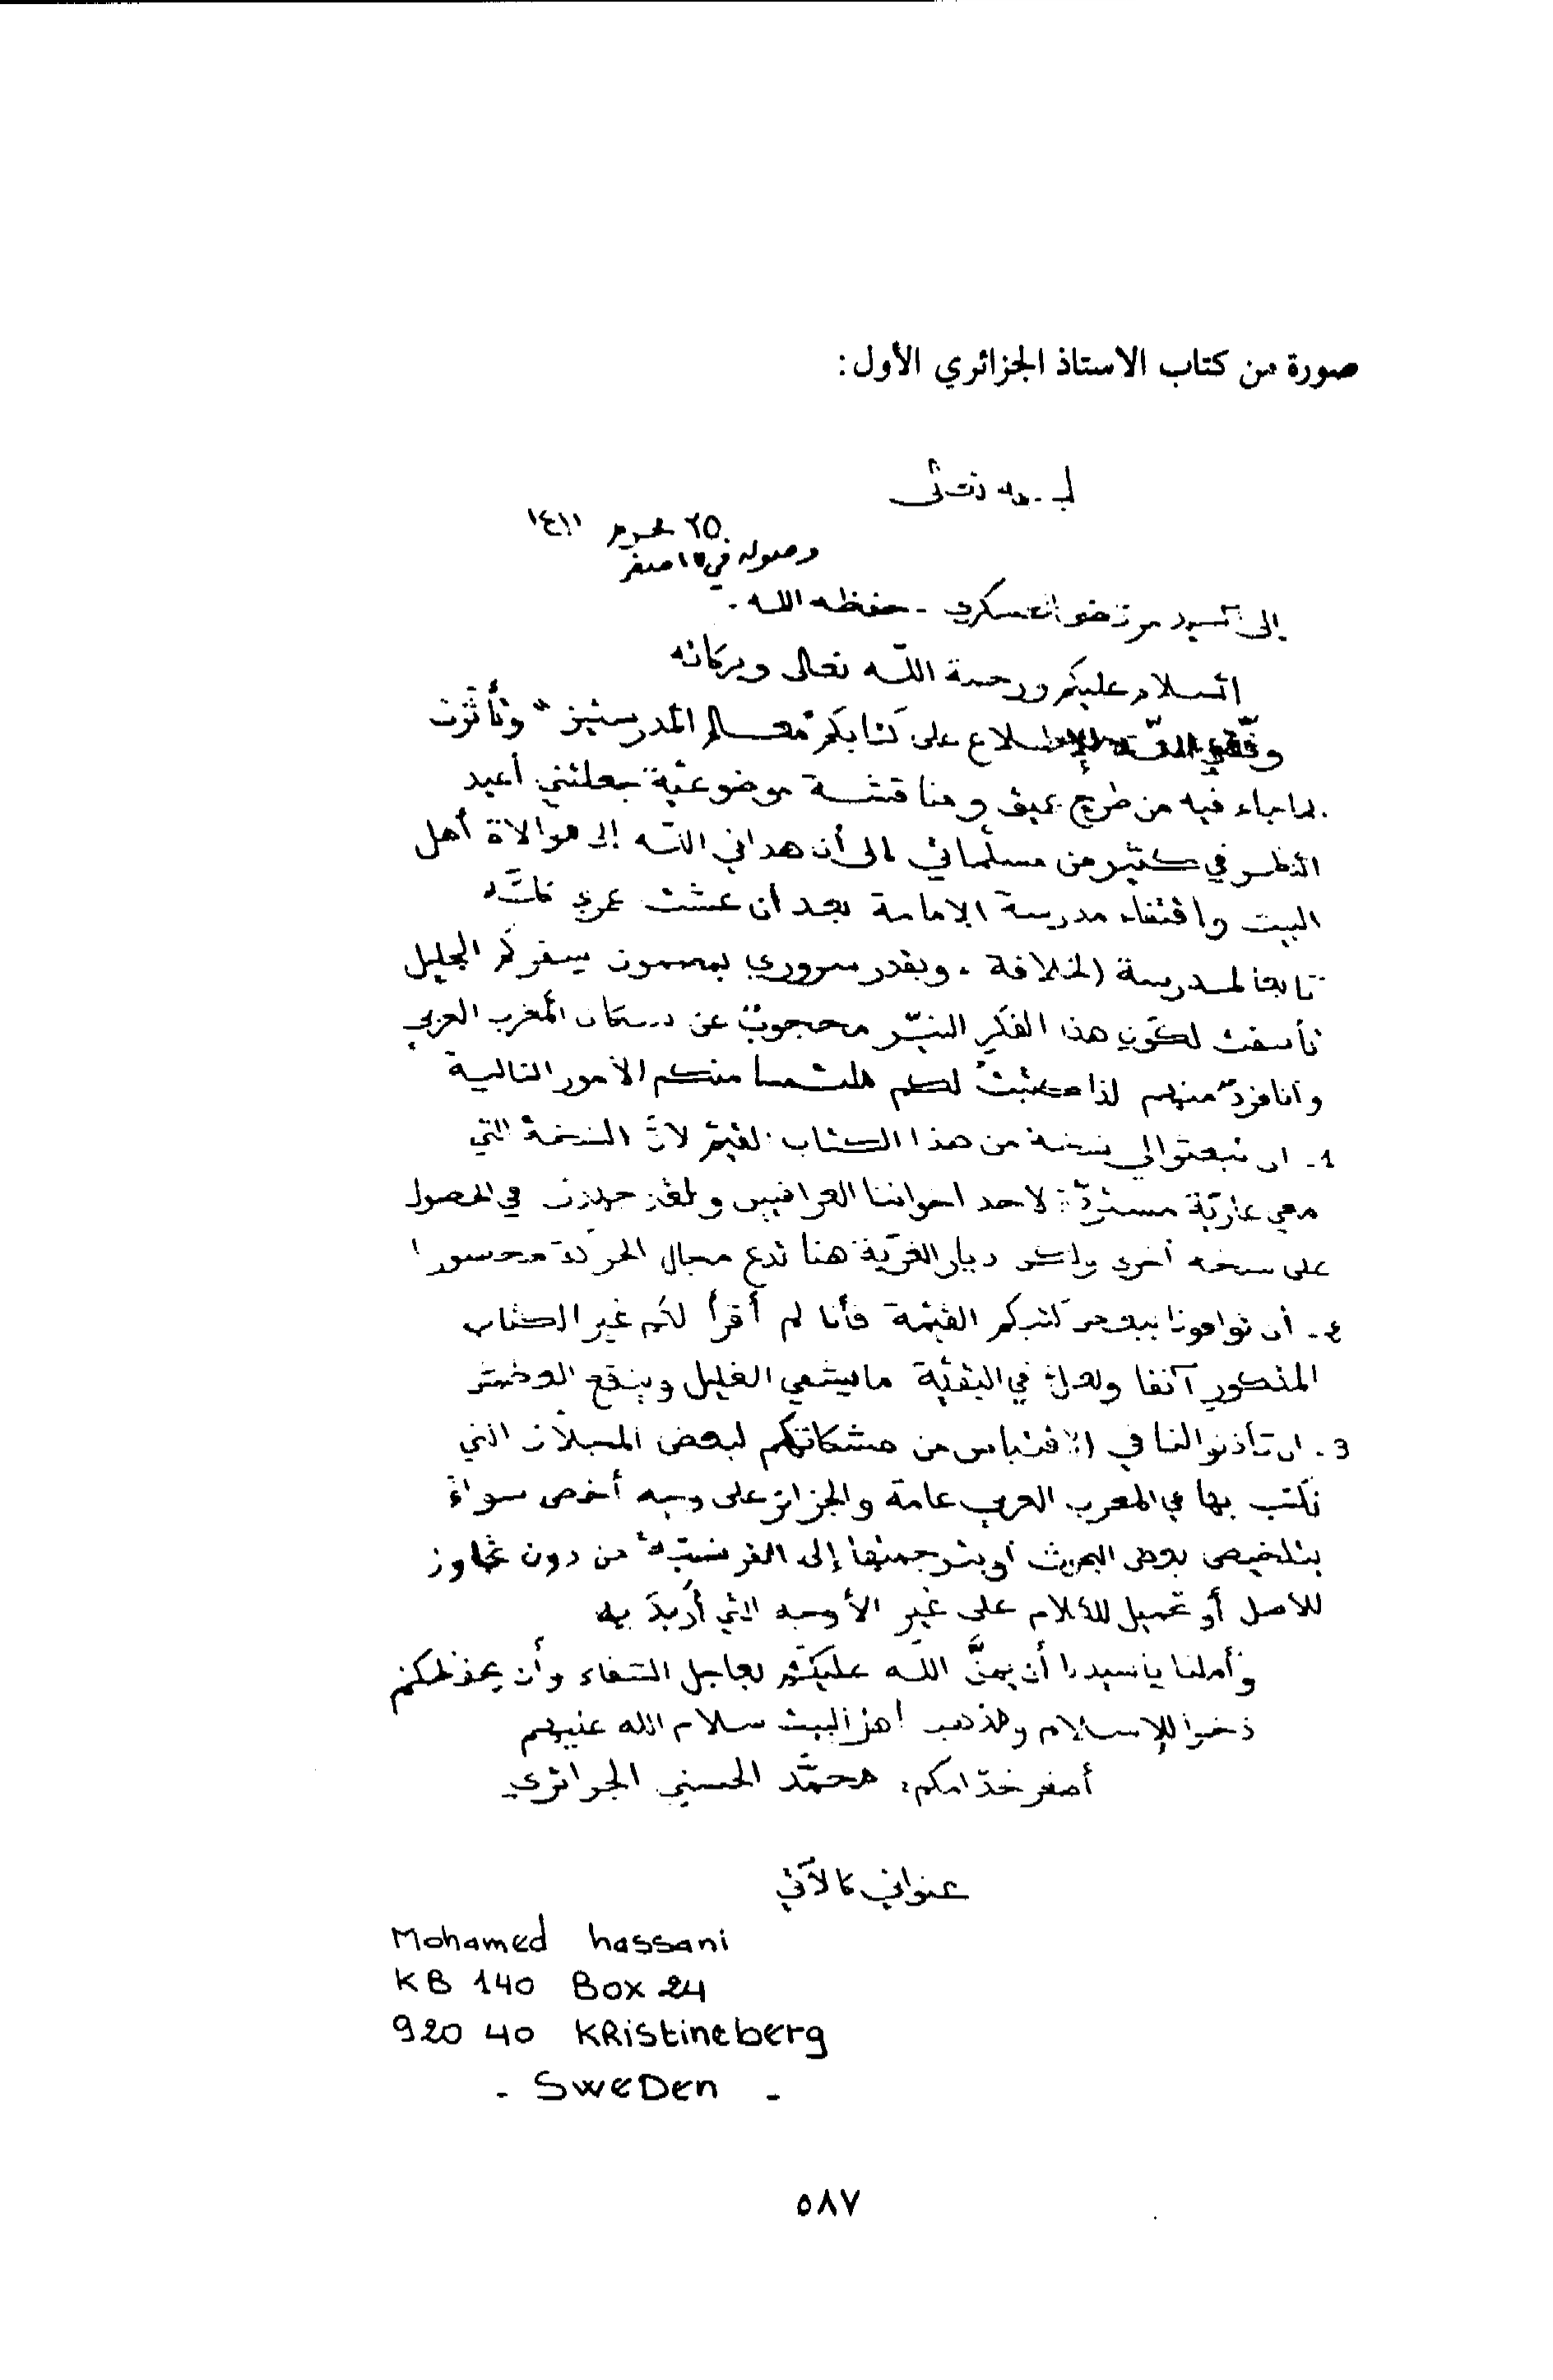 صورة من كتاب الاستاذ الجزائري الأول:
٢٥ محرم ١٤١١
وصوله في ١٥ صفر
إلى السيد مرتضى العسكري - حفظه الله -
السلام عليكم ورحمة الله تعالى وبركاته
وفّقني اللّه للإطلاع على كتابكم "معالم المدرستين" وتأثرت
لما جاء فيه من طرح عميق ومناقشة موضوعيّة جعلتني أعيد
النظر في كثير من مسلّماتي إلى أن هداني اللّه إلى موالاة أهل
البيت واقتفاء مدرسة الإمامة بعد أن عشت عمري كلّه
تابعا لمدرسة الخلافة . وبقدر سروري بمضمون سفركم الجليل
تأسفت لكون هذا الفكر النيّر محجوبٌ عن سكان المغرب العربي
وأنا فردٌ منهم لذا كتبتُ لكم ملتمسا منكم الأمور التالية
1 - ان تبعثوا لي نسخة من هذا الكتاب القيّم لانّ النسخة التي
معي عاريّة مستردّة لاحد اخواننا العراقيين ولقد جهدت في الحصول
على نسخة أخرى ولكن ديار الغربة هنا تدع مجال الحركة محسورا
٤ - أن توافونا ببعض كتبكم القيّمة فأنا لم أقرأ لكم غير الكتاب
المذكور آنفا ولعلّ في البقيّة ما يشفي الغليل وينقع
3 - ان تأذنوا لنا في الاقتباس من مشكاتكم لبعض المجلاّت التي
نكتب بها في المغرب العربي عامة والجزائر على وجه أخص سواءً
بتلخيص بعض البحوث أو بترجمتها إلى الفرنسيّة من دون تجاوز
للأصل أو تحميل للكلام على غير الأوجه التي أُريدَ به
وأملنا يا سيدنا أن يمنَّ اللّه عليكم بعاجل الشفاء وأن يحفظكم
ذخرا للإسلام ومذهب أهل البيت سلام الله عليهم
أصغر خدّامكم: محمّد الحسني الجزائري
عنواني كالآتي
Mohamed hassani
KB 140 Box 24
920 40 KRistineberg
- SweDen -
٥٨٧